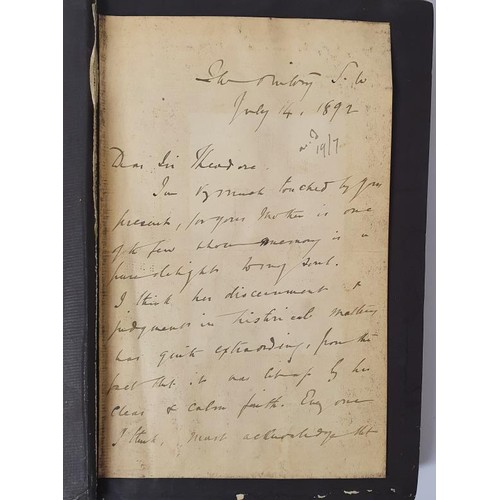 The Oratory S. W
July 14, 1892
19/7
Dear Sir Theodore
I am very much touched by your
present, for your Mother is one
of the few whose memory is a
pure delight to my soul.
I think her discernment &
judgments in historical matters
was quite extraording, from the
fact that it was lit up by her
clear & calm faith. Every one
I think, must acknowledge that